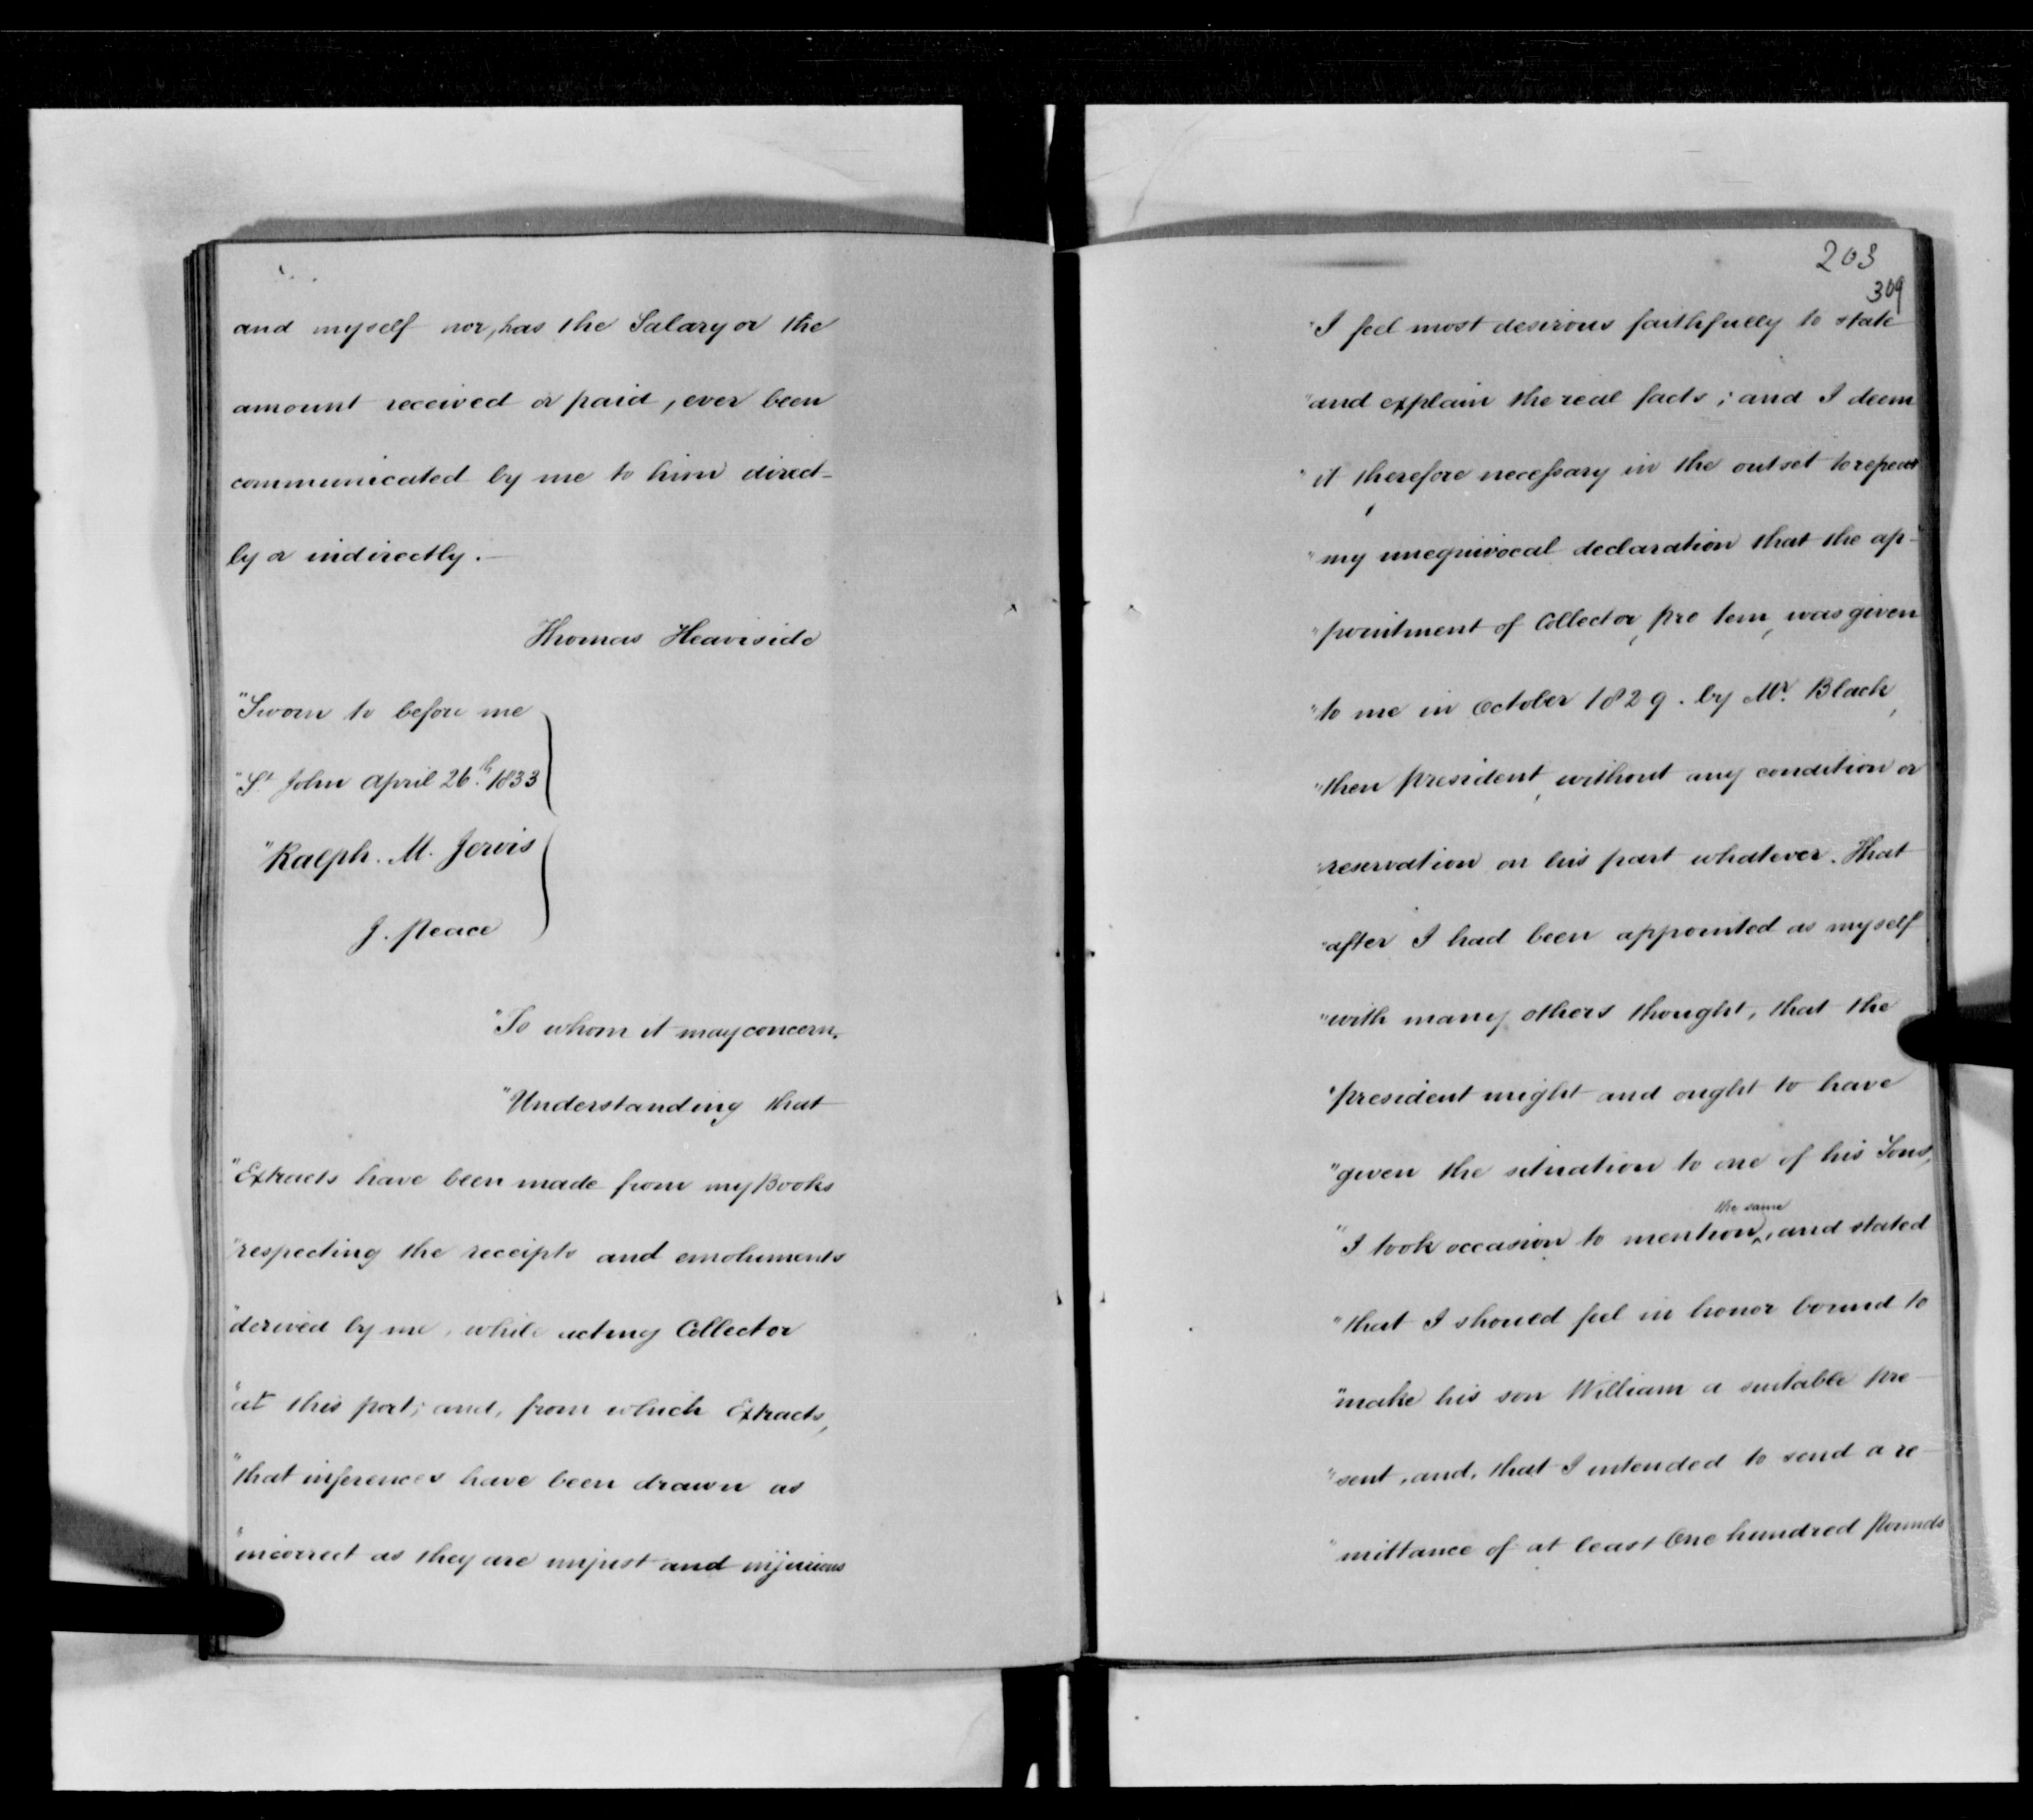 and myself nor, has the Salary or the
amount received or paid, ever been
communicated by me to him direct-
ly or indirectly.—
Thomas Heaviside
"Sworn to before me
"St John April 26th. 1833
"Ralph. M. Jervis
J. Peace
"To whom it may concern.
"Understanding that
"Extracts have been made from my Books
"respecting the receipts and emoluments
"derived by me, while acting Collector
"at this port; and, from which Extracts,
"that inferences have been drawn as
"incorrect as they are unjust and injurious
203
309
"I feel most desirous faithfully to state
"and explain the real facts; and I deem
"it therefore necessary in the outset to repeat
"my unequivocal declaration that the ap-
"pointment of Collector, pro tem, was given
"to me in October 1829. by Mr. Black,
"then president, without any condition or
"reservation on his part whatever. That
"after I had been appointed as myself
"with many others thought, that the
"president might and ought to have
"given the situation to one of his Sons,
the same
"I took occasion to mention^, and stated
"that I should feel in honor bound to
"make his son William a suitable pre-
"sent, and, that I intended to send a re-
"mittance of at least One hundred pounds